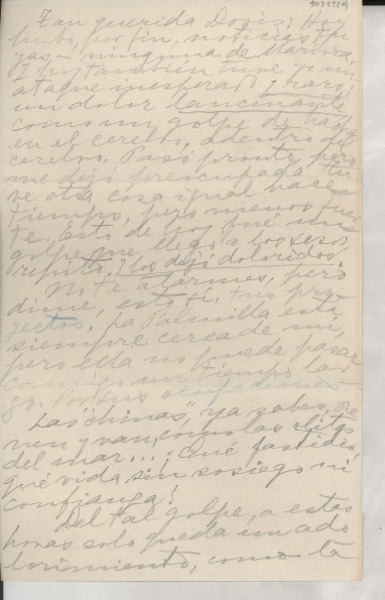 Tan querida Doris: Hoy
hubo, por fin, noticias tu-
yas — ninguna de
I hoy también tuve yo un
ataque inesperado y raro:
un dolor lancinante
como un golpe de
en el cerebro, adentro del
cerebro. Pasó pronto, pero
me dejó preocupada. Tu-
ve otra cosa igual hace
tiempo, pero menos fuer-
te. Esto de hoy fué un
golpe que llegó a los sesos,
repito, y los dejó doloridos.
No te alarmes, pero
dime, esto sí, tus pro-
yectos. La Palmilla está
siempre cerca de mí,
pero ella no puede pasar
conmigo un tiempo lar-
go. Por sus ocupaciones.
Las "chinas", ya sabes, vie-
nen y van, como las
del mar... ¡Qué fastidio,
qué vida sin sosiego ni
confianza!
Del tal golpe, a estas
horas solo queda un ado-
lorimiento, como la